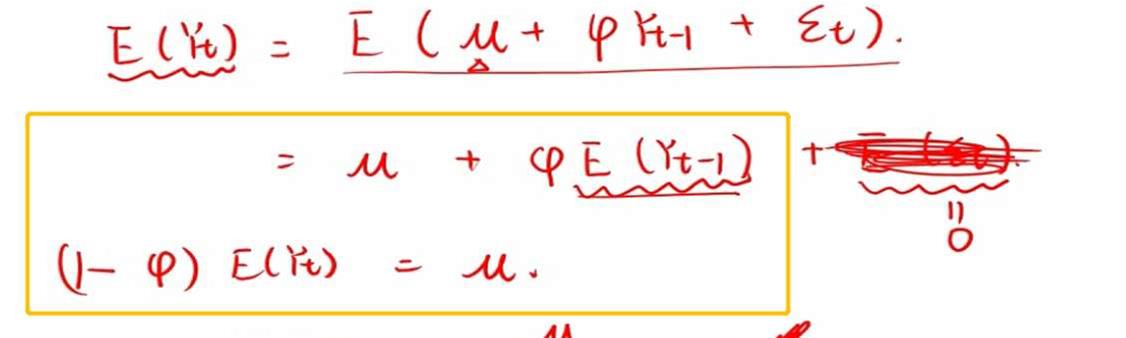 E(Yt) = E(μ + φYt-1 + εt).
= μ + φE(Yt-1) + E(εt).
=
0
(1-φ) E(Yt) = μ.
μ